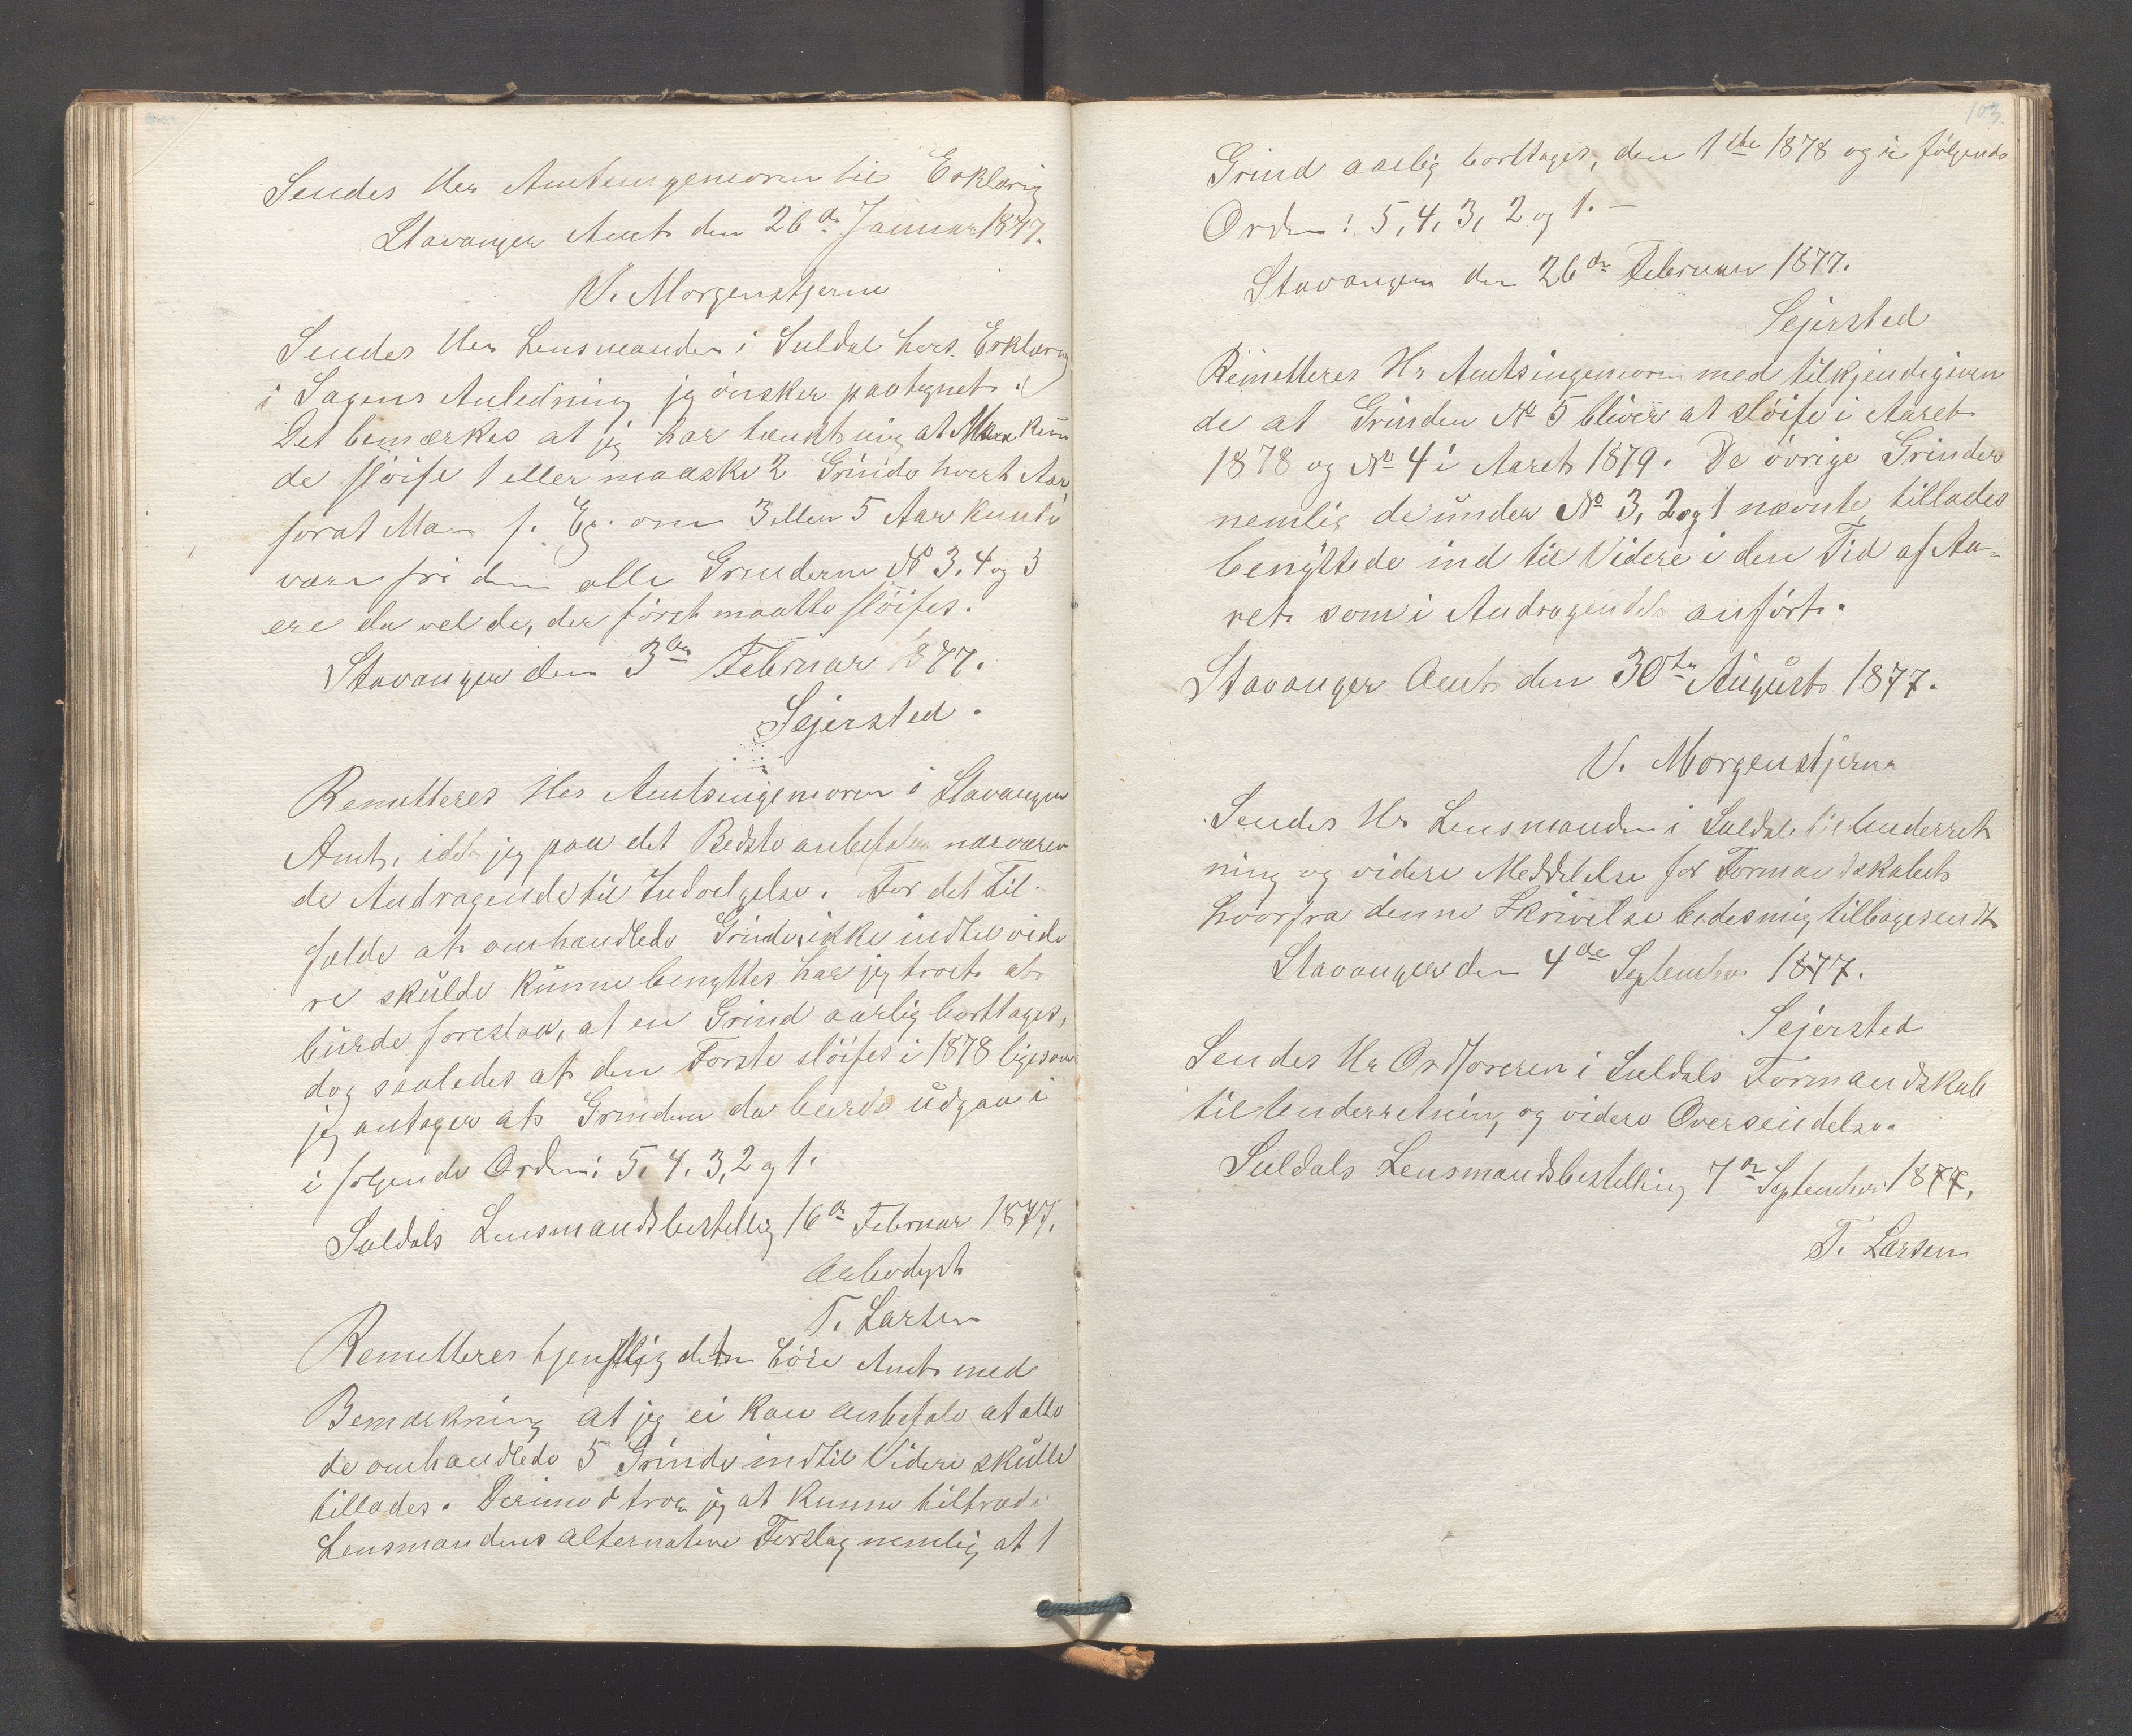 Sendes Herr Amtsingeniøren til Erklæring
Stavanger Amt den 26de Januar 1877.
V. Morgenstjerne
Sendes Herr Lensmanden i Suldal hvis Erklæring
i Sagens Anledning jeg ønsker paategnet.
Det bemærkes at jeg har tænkt mig at Man kun
de sløife 1 eller maaske 2 Grinde hvert Aar
forat Man f. Ex. om 3 eller 5 Aar kunde
være fri dem alle Grinderne No 3. 4 og 5
ere da vel de, der først maatte sløifes.
Stavanger den 3die Februar 1877.
Sejersted.
Remitteres Herr Amtsingeniøren i Stavanger
Amt, idet jeg paa det Bedste anbefaler nærværen
de Andragende til Indvilgelse. For det Til-
fælde at omhandlede Grinde ikke indtil vide
re skulde kunne benyttes har jeg troet at
burde foreslaa, at en Grind aarlig borttages,
dog saaledes at den Første sløifes i 1878 ligesom
jeg antager at Grindene da burde udgaa i
i følgende Orden: 5, 4. 3, 2 og 1.
Suldals Lensmandsbestilling 16de Februar 1877.
Ærbødigst
T. Larsen
Remitteres tjenstligst det høie Amt med
Bemærkning at jeg ei kan anbefale at alle
de omhandlede 5 Grinde indtil Videre skulle
tillades. Derimod troer jeg at kunne tiltræde
Lensmandens alternative Forslag nemlig at 1
103.
Grind aarlig borttages, den 1ste 1878 og i følgende
Orden: 5, 4, 3, 2 og 1. –
Stavanger den 26de Februar 1877.
Sejersted
Remitteres Hr Amtsingeniøren med tilkjendegiven
de at Grinden No 5 bliver at sløife i Aaret
1878 og No 4 i Aaret 1879. De øvrige Grinder
nemlig de under No 3, 2 og 1 nævnte tillades
benyttede ind til Videre i den Tid af Aa-
ret som i Andragendet anført.
Stavanger Amt den 30te August 1877.
V. Morgenstjerne
Sendes Hr Lensmanden i Suldal til Underret
ning og videre Meddelelse for Formandskabet
hvorfra denne Skrivelse bedes mig tilbagesendt
Stavanger den 4de September 1877.
Sejersted
Sendes Hr Ordføreren i Suldals Formandskab
til Underretning og videre Oversendelse.
Suldals Lensmandsbestilling 7de September 1877.
T. Larsen